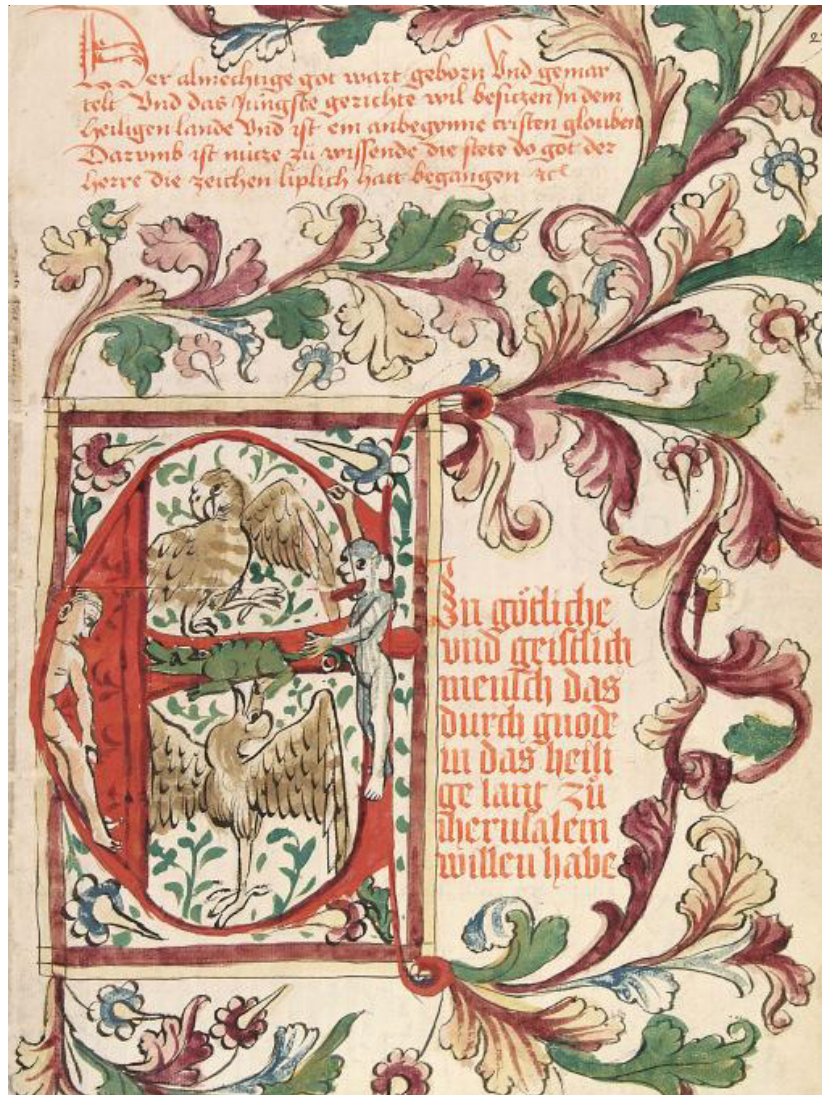 Der almechtige got wart geborn Vnd gemar
telt Vnd das Jungste gerichte wil besitzen Jn dem
heiligen lande Vnd ist ein anbegynne cristen glouben
Darumb ist nücze zü wissende die stete do got der
herre die zeichen liplich hatt begangen ꝛcᵉ
Ein götliche
vnd geistlich
mensch das
durch gnode
in das heili
ge lant zů
iherusalem
willen habe